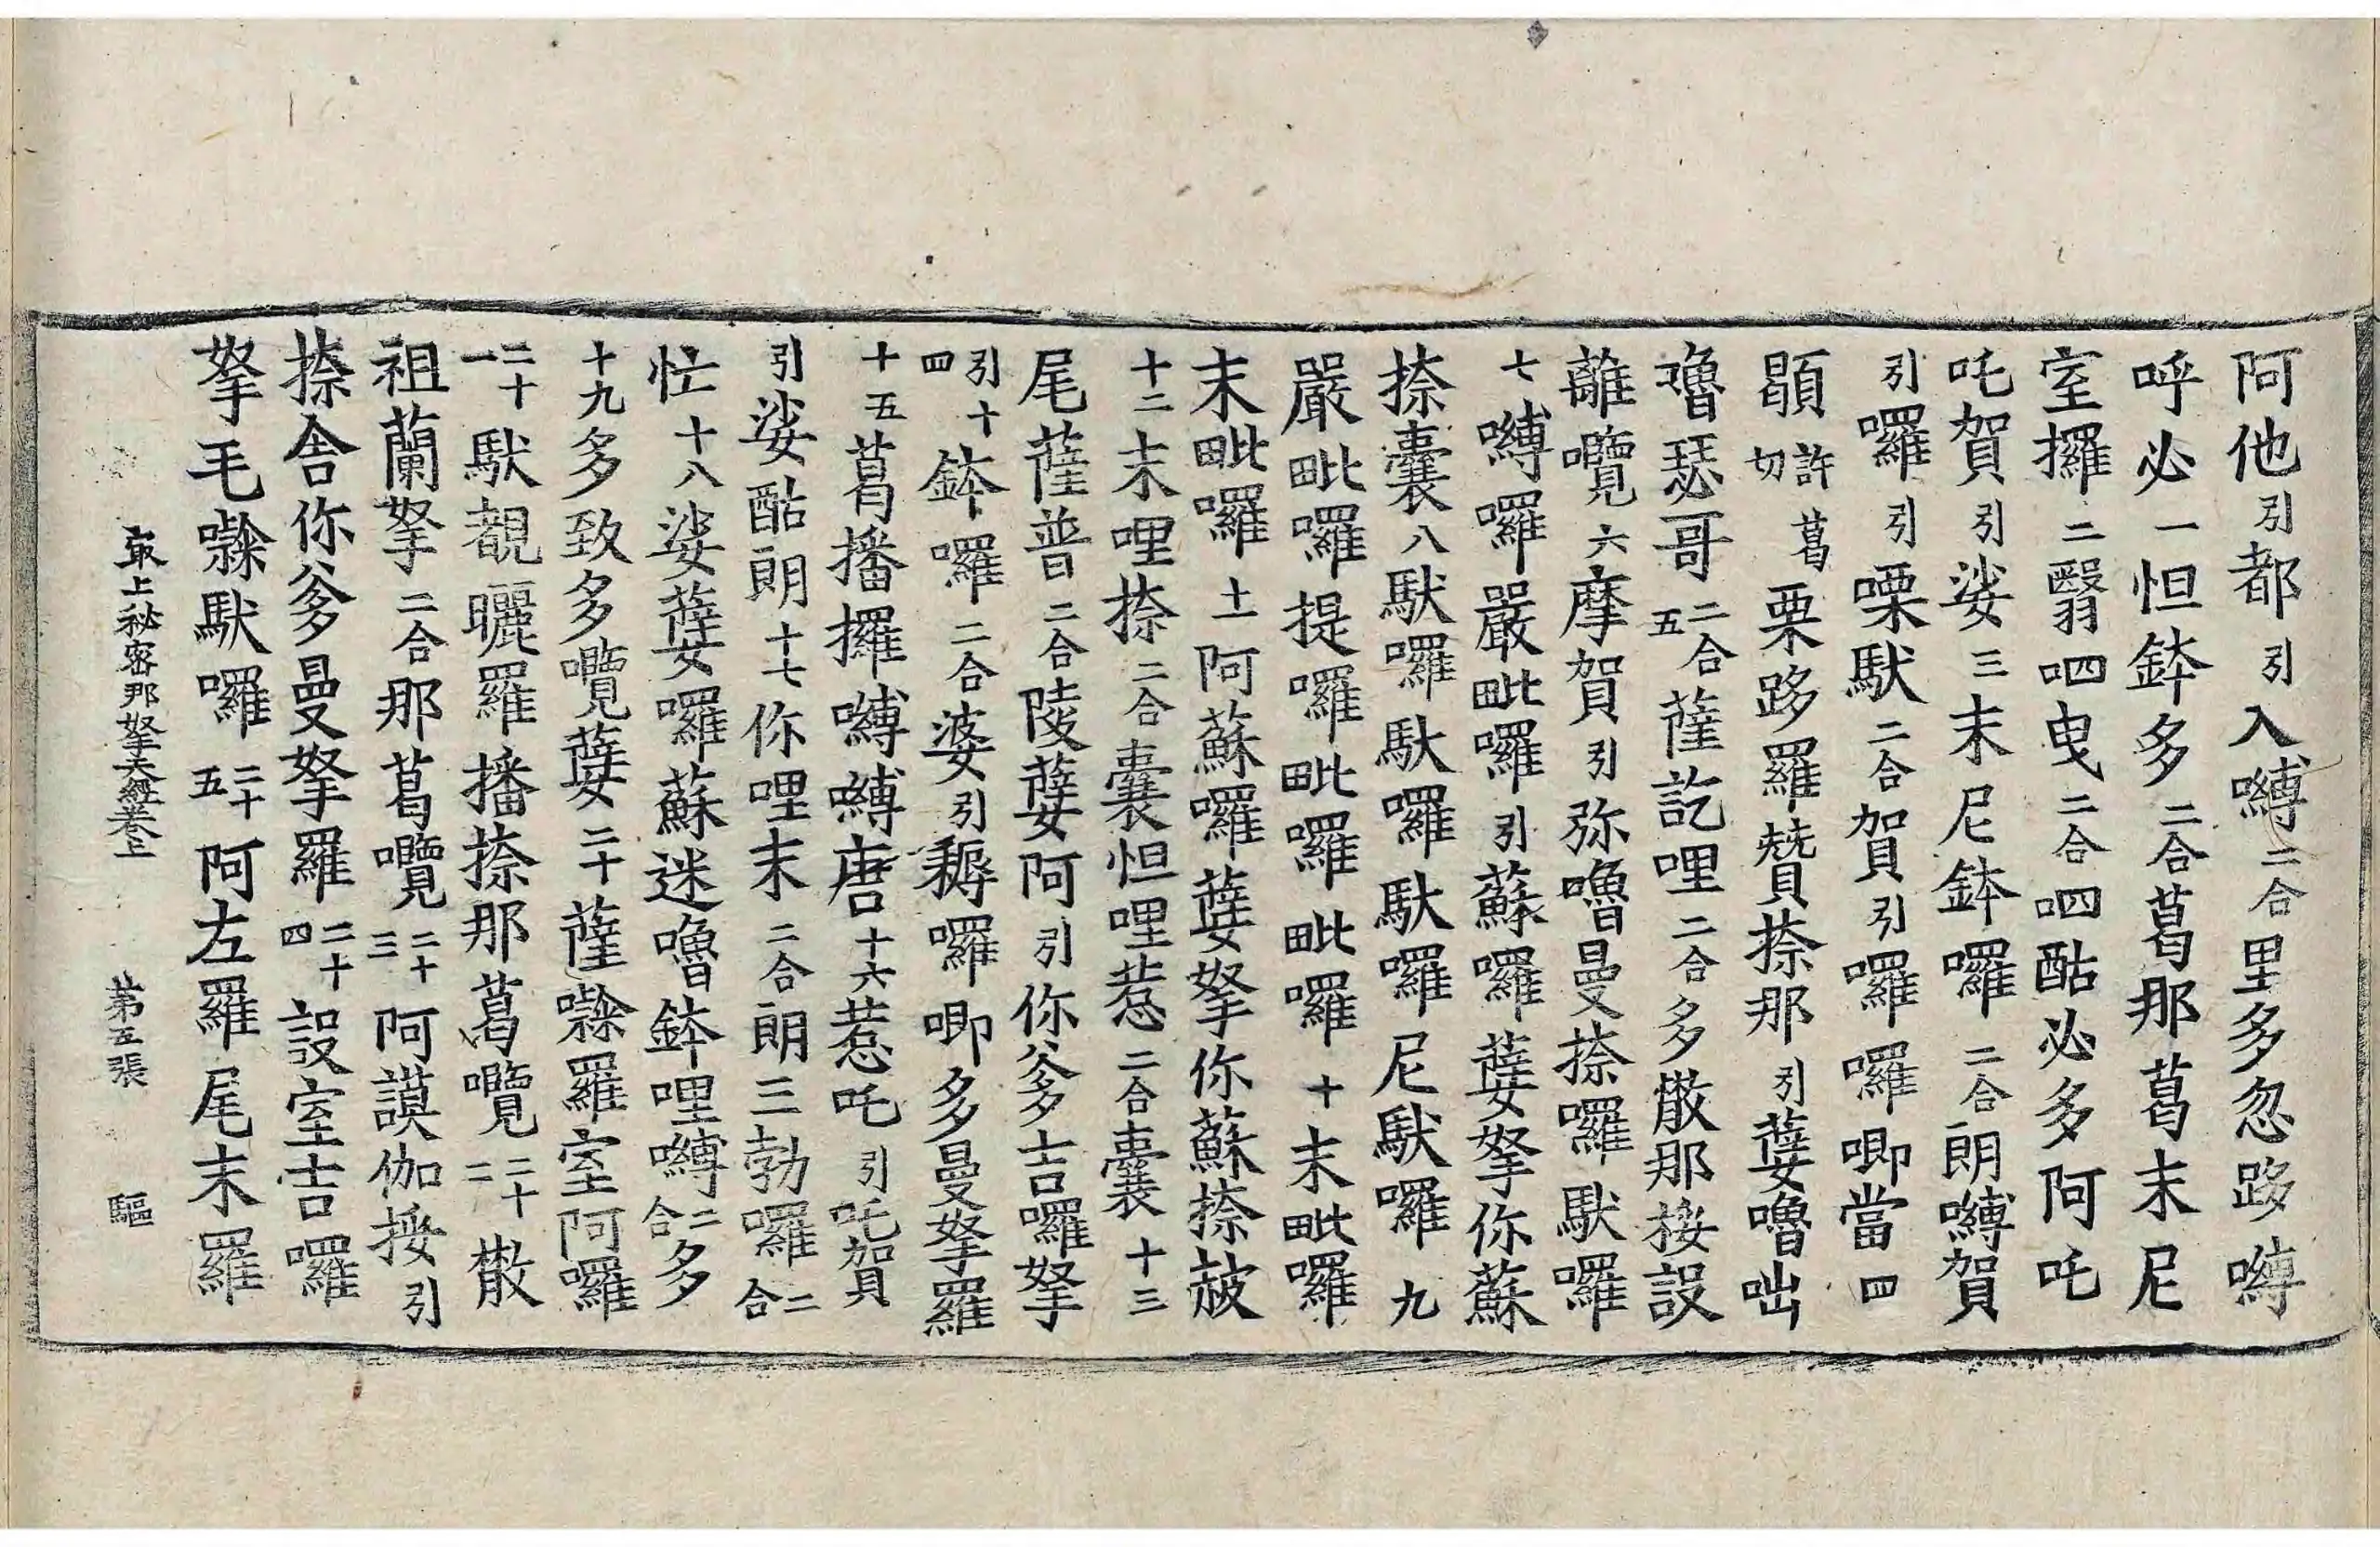 阿他引都引入嚩二合里多忽跢嚩
呼必一怛鉢多二合葛那葛末尼
室攞二翳呬曳二合呬酤必多阿吒
吒賀引娑三末尼鉢囉二合朗嚩賀
引囉引㗚馱二合賀引囉囉唧當四
顕許葛切栗跢羅贊捺那引㜸嚕咄
嚕瑟哥二合五薩訖哩二合多散那接設
蘺囕六摩賀引弥嚕曼捺囉馱囉
七嚩囉嚴毗囉引蘇囉㜸拏你蘇
捺囊八馱囉馱囉馱囉尼馱囉九
嚴毗囉提囉毗囉毗囉十末毗囉
末毗囉十一阿蘇囉㜸拏你蘇捺蔎
十二末哩捺二合囊怛哩惹二合囊十三
尾薩普二合陵㜸阿引你爹吉囉拏
引十四鉢囉二合婆引耨囉唧多曼拏羅
十五葛播攞嚩嚩唐十六惹吒引吒賀
引娑酤朗十七你哩末二合朗三勃囉二合
忙十八娑㜸囉蘇迷嚕鉢哩嚩二合多
十九多致多囕㜸二十薩㘑羅室阿囉
二十一馱覩矖羅播捺那葛囕二十二散
祖蘭拏二合那葛囕二十三阿謨伽接引
捺舍你爹曼拏羅二十四設室吉囉
拏毛㘑馱囉二十五阿左羅尾末羅
最上秘密那拏天經卷上 第五張 驅